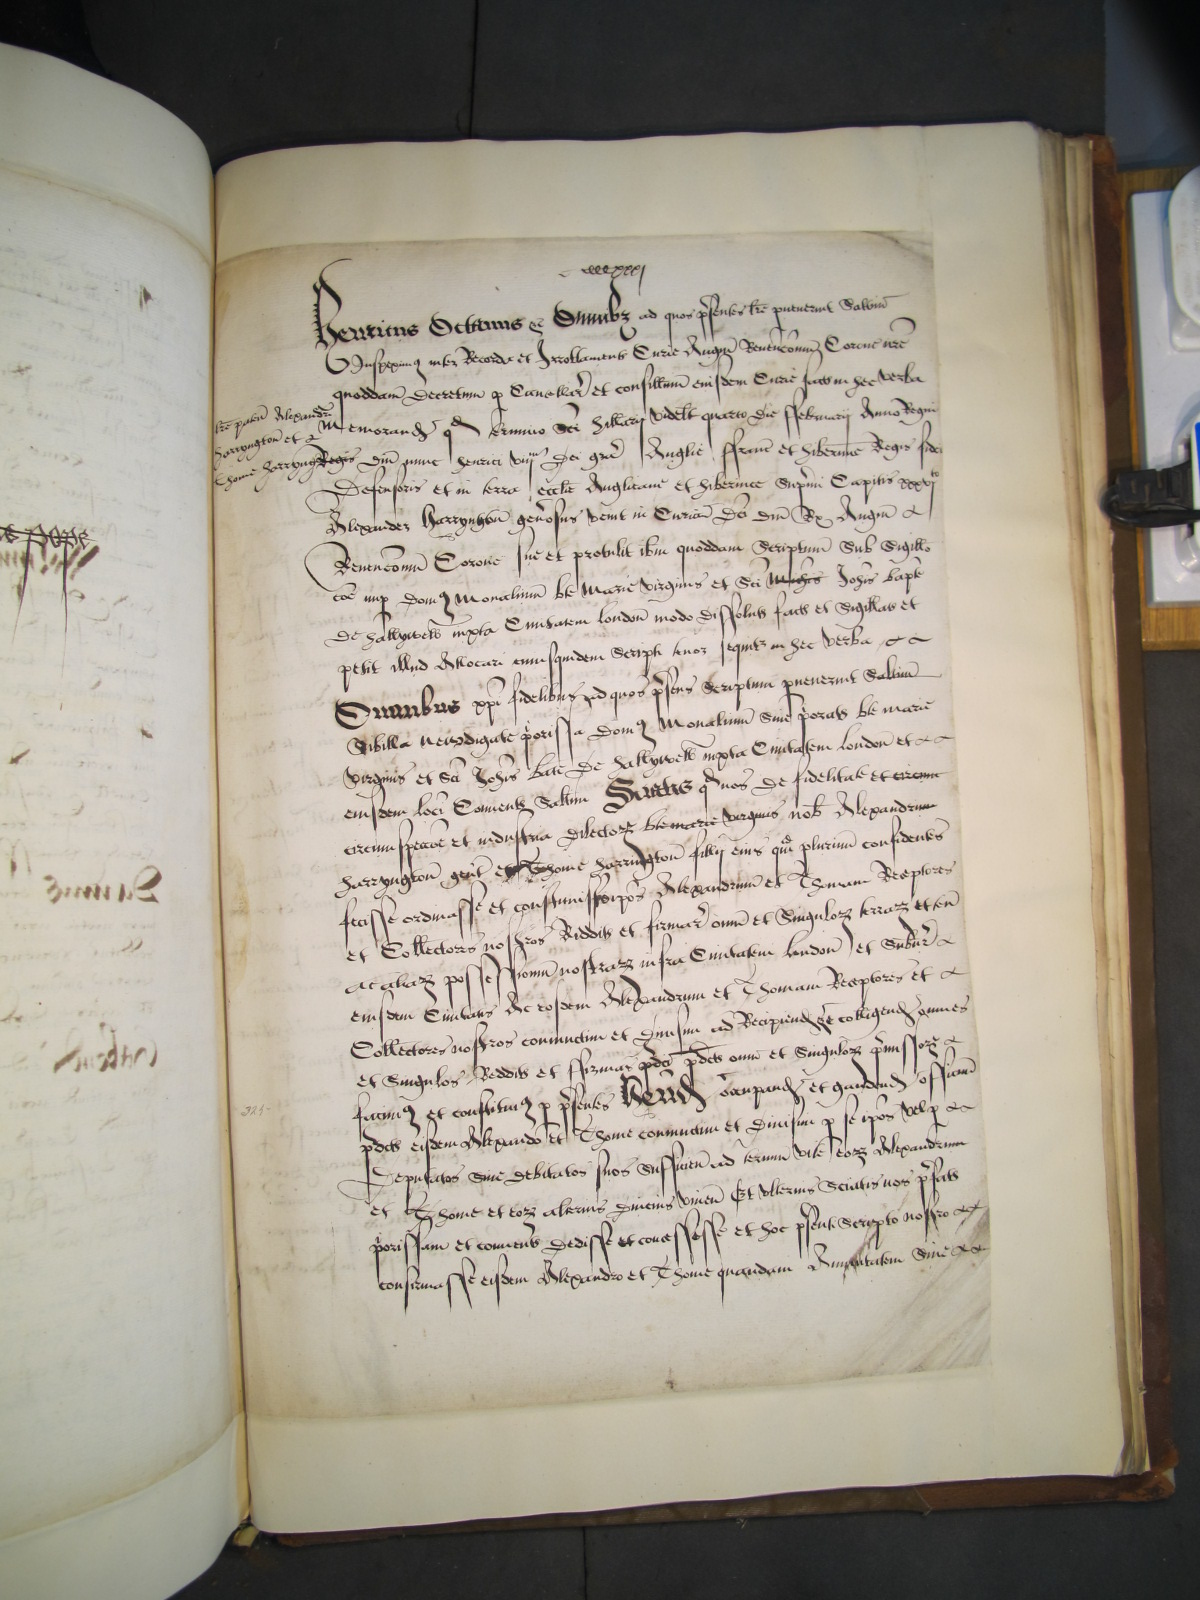 cccxxxj
Henricus Octavus &c Omnibz ad quos p̃sentes l̃re pvenerint Salt̃m
Inspeximus inter Recorda et Irrotlamenta Curie Augm̃ Revenc̃onum Corone nr̃e
quoddam Decretum p Cancellar̃ et consilium eiusdem Curie fact̃ in hec verba
l̃re paten̄ Alexandri
Harryngton et
Thome Harryngton
Memorand̃ qd termino Sc̃i Hillarij videl̃t quarto die ffebruarij Anno Regni
Regis Dñi nunc Henrici viij Dei gr̃a Anglie ffranc̃ et Hibernie Regis fidei
Defensoris et in terra eccl̃ie Anglicane et Hibernice Sup̃mi Capitis xxxvjto
Alexander Harryngton gen̄osus venit in Curiam̃ D̃ci Dñi R̃x Augm̃
Revenc̃onum Corone sue et protulit ib̃m quoddam Scriptum Sub Sigillo
c̃oe nup Domus Monalium b̃te Marie Virginis et Sc̃i Joh̃is Bapt̃e
De Hallywell iuxta Civitatem london̄ modo dissolut̃ fact̃ et Sigillat̃ et
petit illud Allocari cuiusquidem Script̃ tenor sequitr in hec verba
Omnibus xp̃i fidelibus ad quos p̃sens Scriptum pvenerint Salt̃m
Sibilla Newdigate p̃orissa Domus Monalium Sive p̃orat̃ b̃te marie
Virginis et Sc̃i Joh̃is bap̃te De Hallywell iuxta Civitatem london̄ et
eiusdem loci Convent̃ Salt̃m Sciatis q̃ nos de fidelitate et circum
circumspecc̃oe et industria dilectorz b̃te marie virginis nob̃ Alexandrum
Harryngton gen̄t et Thome Harrington filij eius q̃m plurimu confidentes
fecisse ordinasse et constituisse ip̃os Alexandrum et Thomam Receptores
et Collectores nostros Reddit̃ et firmar̃ omn̄ et Singulorz terrarz et ten̄
ac aliarz possessionum nostrarz infra Civitatem london̄ et Suburb̃
eiusdem Civitatis Ac eosdem Alexandrum et Thomam Receptores et
Collectores nostros coniunctim et Divisim ad Recipiend̃ et colligend̃ omnes
et Singulos Reddit̃ et ffirmas p̃d̃c̃ p̃dict̃ omn̄ et Singulorz p̃missorz
facimus et constituimus p p̃sentes Hend̃ occupand̃ et gaudend̃ officium
p̃dict̃ eisdem Alexandro et Thome coniunctim et divisim p se ip̃os vel p
Deputatos sive debitatos suos sufficien̄ ad terminu vite eorz Alexandrum
et Thome et eorz alterius diucius viven̄ Et ulterius Sciatis nos p̃fat̃
p̃orissam et convent̃ Dedisse et concessisse et hoc p̃senti Scripto nostro
confirmasse eisdem Alexandro et Thome quandam Annuitatem Sive
325